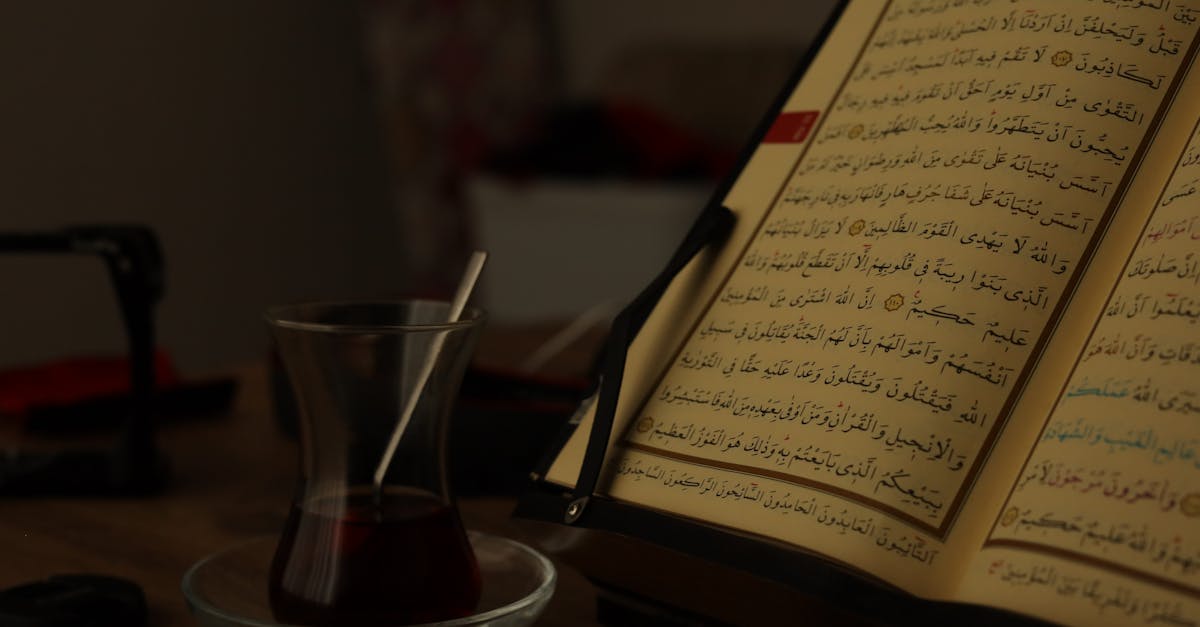 عَسَى
اَمْوَالِهِمْ
اِنَّ صَلٰوتَكَ
يَعْلَمُٓوا اَنَّ اللّٰهَ
وَاَنَّ اللّٰهَ هُوَ
اللّٰهُ عَمَلَكُمْ
عَالِمِ الْغَيْبِ وَالشَّهَادَةِ
وَاٰخَرُونَ مُرْجَوْنَ لِاَمْرِ
وَاللّٰهُ عَلِيمٌ حَكِيمٌ
وَتَفْرِيقًا بَيْنَ الْمُؤْمِنِينَ
بَيْنَ الْمُؤْمِنِينَ اللّٰهَ وَرَسُولَهُ مِنْ
قَبْلُ وَلَيَحْلِفُنَّ اِنْ اَرَدْنَٓا اِلَّا الْحُسْنٰى وَاللّٰهُ يَشْهَدُ اِنَّهُمْ
لَكَاذِبُونَ ﴿١٠٧﴾ لَا تَقُمْ فِيهِ اَبَدًا لَمَسْجِدٌ اُسِّسَ عَلَى
التَّقْوٰى مِنْ اَوَّلِ يَوْمٍ اَحَقُّ اَنْ تَقُومَ فِيهِ فِيهِ رِجَالٌ
يُحِبُّونَ اَنْ يَتَطَهَّرُوا وَاللّٰهُ يُحِبُّ الْمُطَّهِّرِينَ ﴿١٠٨﴾ اَفَمَنْ
اَسَّسَ بُنْيَانَهُ عَلٰى تَقْوٰى مِنَ اللّٰهِ وَرِضْوَانٍ خَيْرٌ اَمْ مَنْ
اَسَّسَ بُنْيَانَهُ عَلٰى شَفَا جُرُفٍ هَارٍ فَانْهَارَ بِهِ فِي نَارِ جَهَنَّمَ
وَاللّٰهُ لَا يَهْدِي الْقَوْمَ الظَّالِمِينَ ﴿١٠٩﴾ لَا يَزَالُ بُنْيَانُهُمُ
الَّذِي بَنَوْا رِيبَةً فِي قُلُوبِهِمْ اِلَّٓا اَنْ تَقَطَّعَ قُلُوبُهُمْ وَاللّٰهُ
عَلِيمٌ حَكِيمٌ ﴿١١٠﴾ اِنَّ اللّٰهَ اشْتَرٰى مِنَ الْمُؤْمِنِينَ
اَنْفُسَهُمْ وَاَمْوَالَهُمْ بِاَنَّ لَهُمُ الْجَنَّةَ يُقَاتِلُونَ فِي سَبِيلِ
اللّٰهِ فَيَقْتُلُونَ وَيُقْتَلُونَ وَعْدًا عَلَيْهِ حَقًّا فِي التَّوْرٰيةِ
وَالْاِنْجِيلِ وَالْقُرْاٰنِ وَمَنْ اَوْفٰى بِعَهْدِهِ مِنَ اللّٰهِ فَاسْتَبْشِرُوا
بِبَيْعِكُمُ الَّذِي بَايَعْتُمْ بِهِ وَذٰلِكَ هُوَ الْفَوْزُ الْعَظِيمُ ﴿١١١﴾
اَلتَّٓائِبُونَ الْعَابِدُونَ الْحَامِدُونَ السَّٓائِحُونَ الرَّاكِعُونَ السَّاجِدُونَ